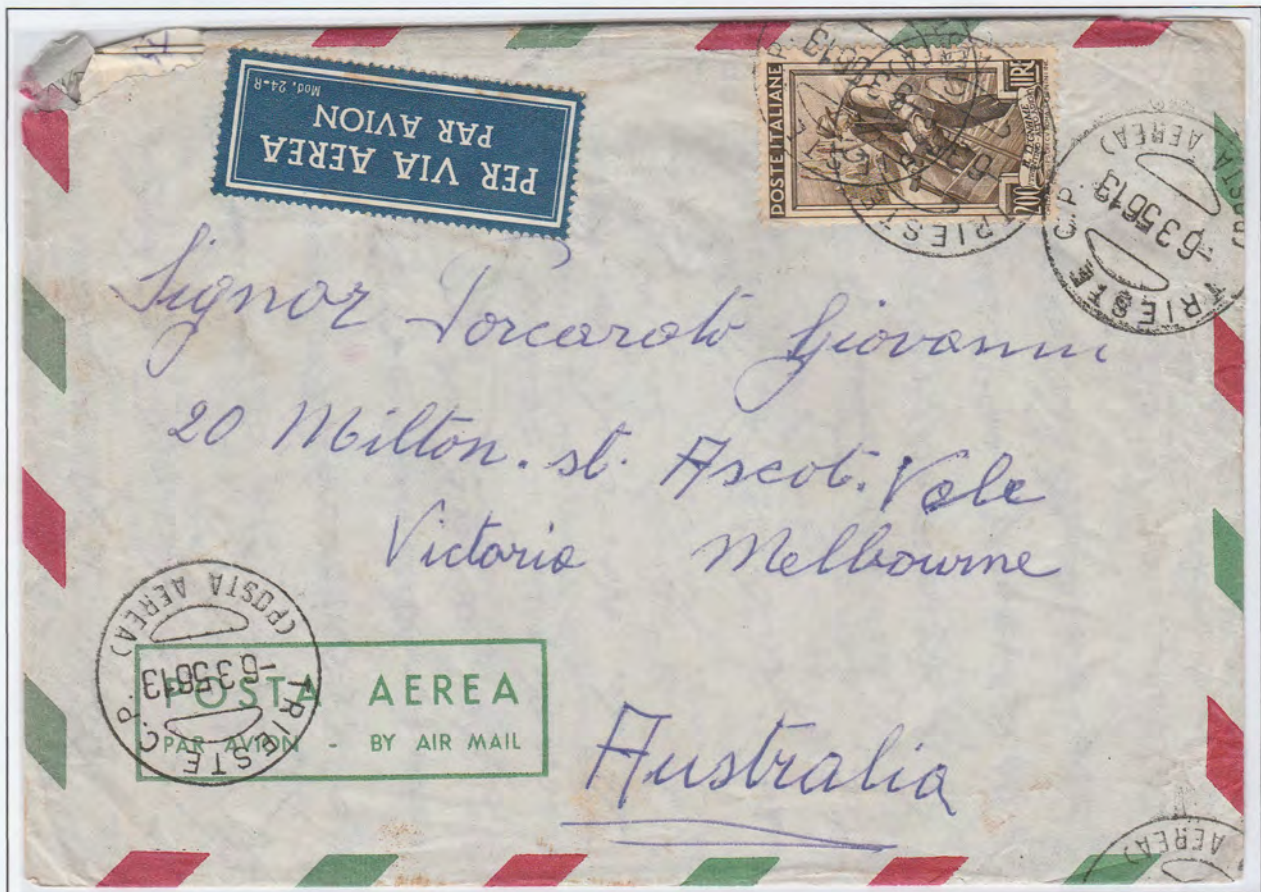 PER VIA AEREA
PAR AVION
Mod. 24-R
POSTE ITALIANE
LIRE
200
TRIESTE C.P.
(POSTA AEREA)
-6.3.56 13
Signor Porcaroto Giovanni
20 Milton. st. Ascot. Vale
Victoria Melbourne
TRIESTE C.P.
(POSTA AEREA)
-6.3.56 13
POSTA AEREA
PAR AVION - BY AIR MAIL
Australia
AEREA)